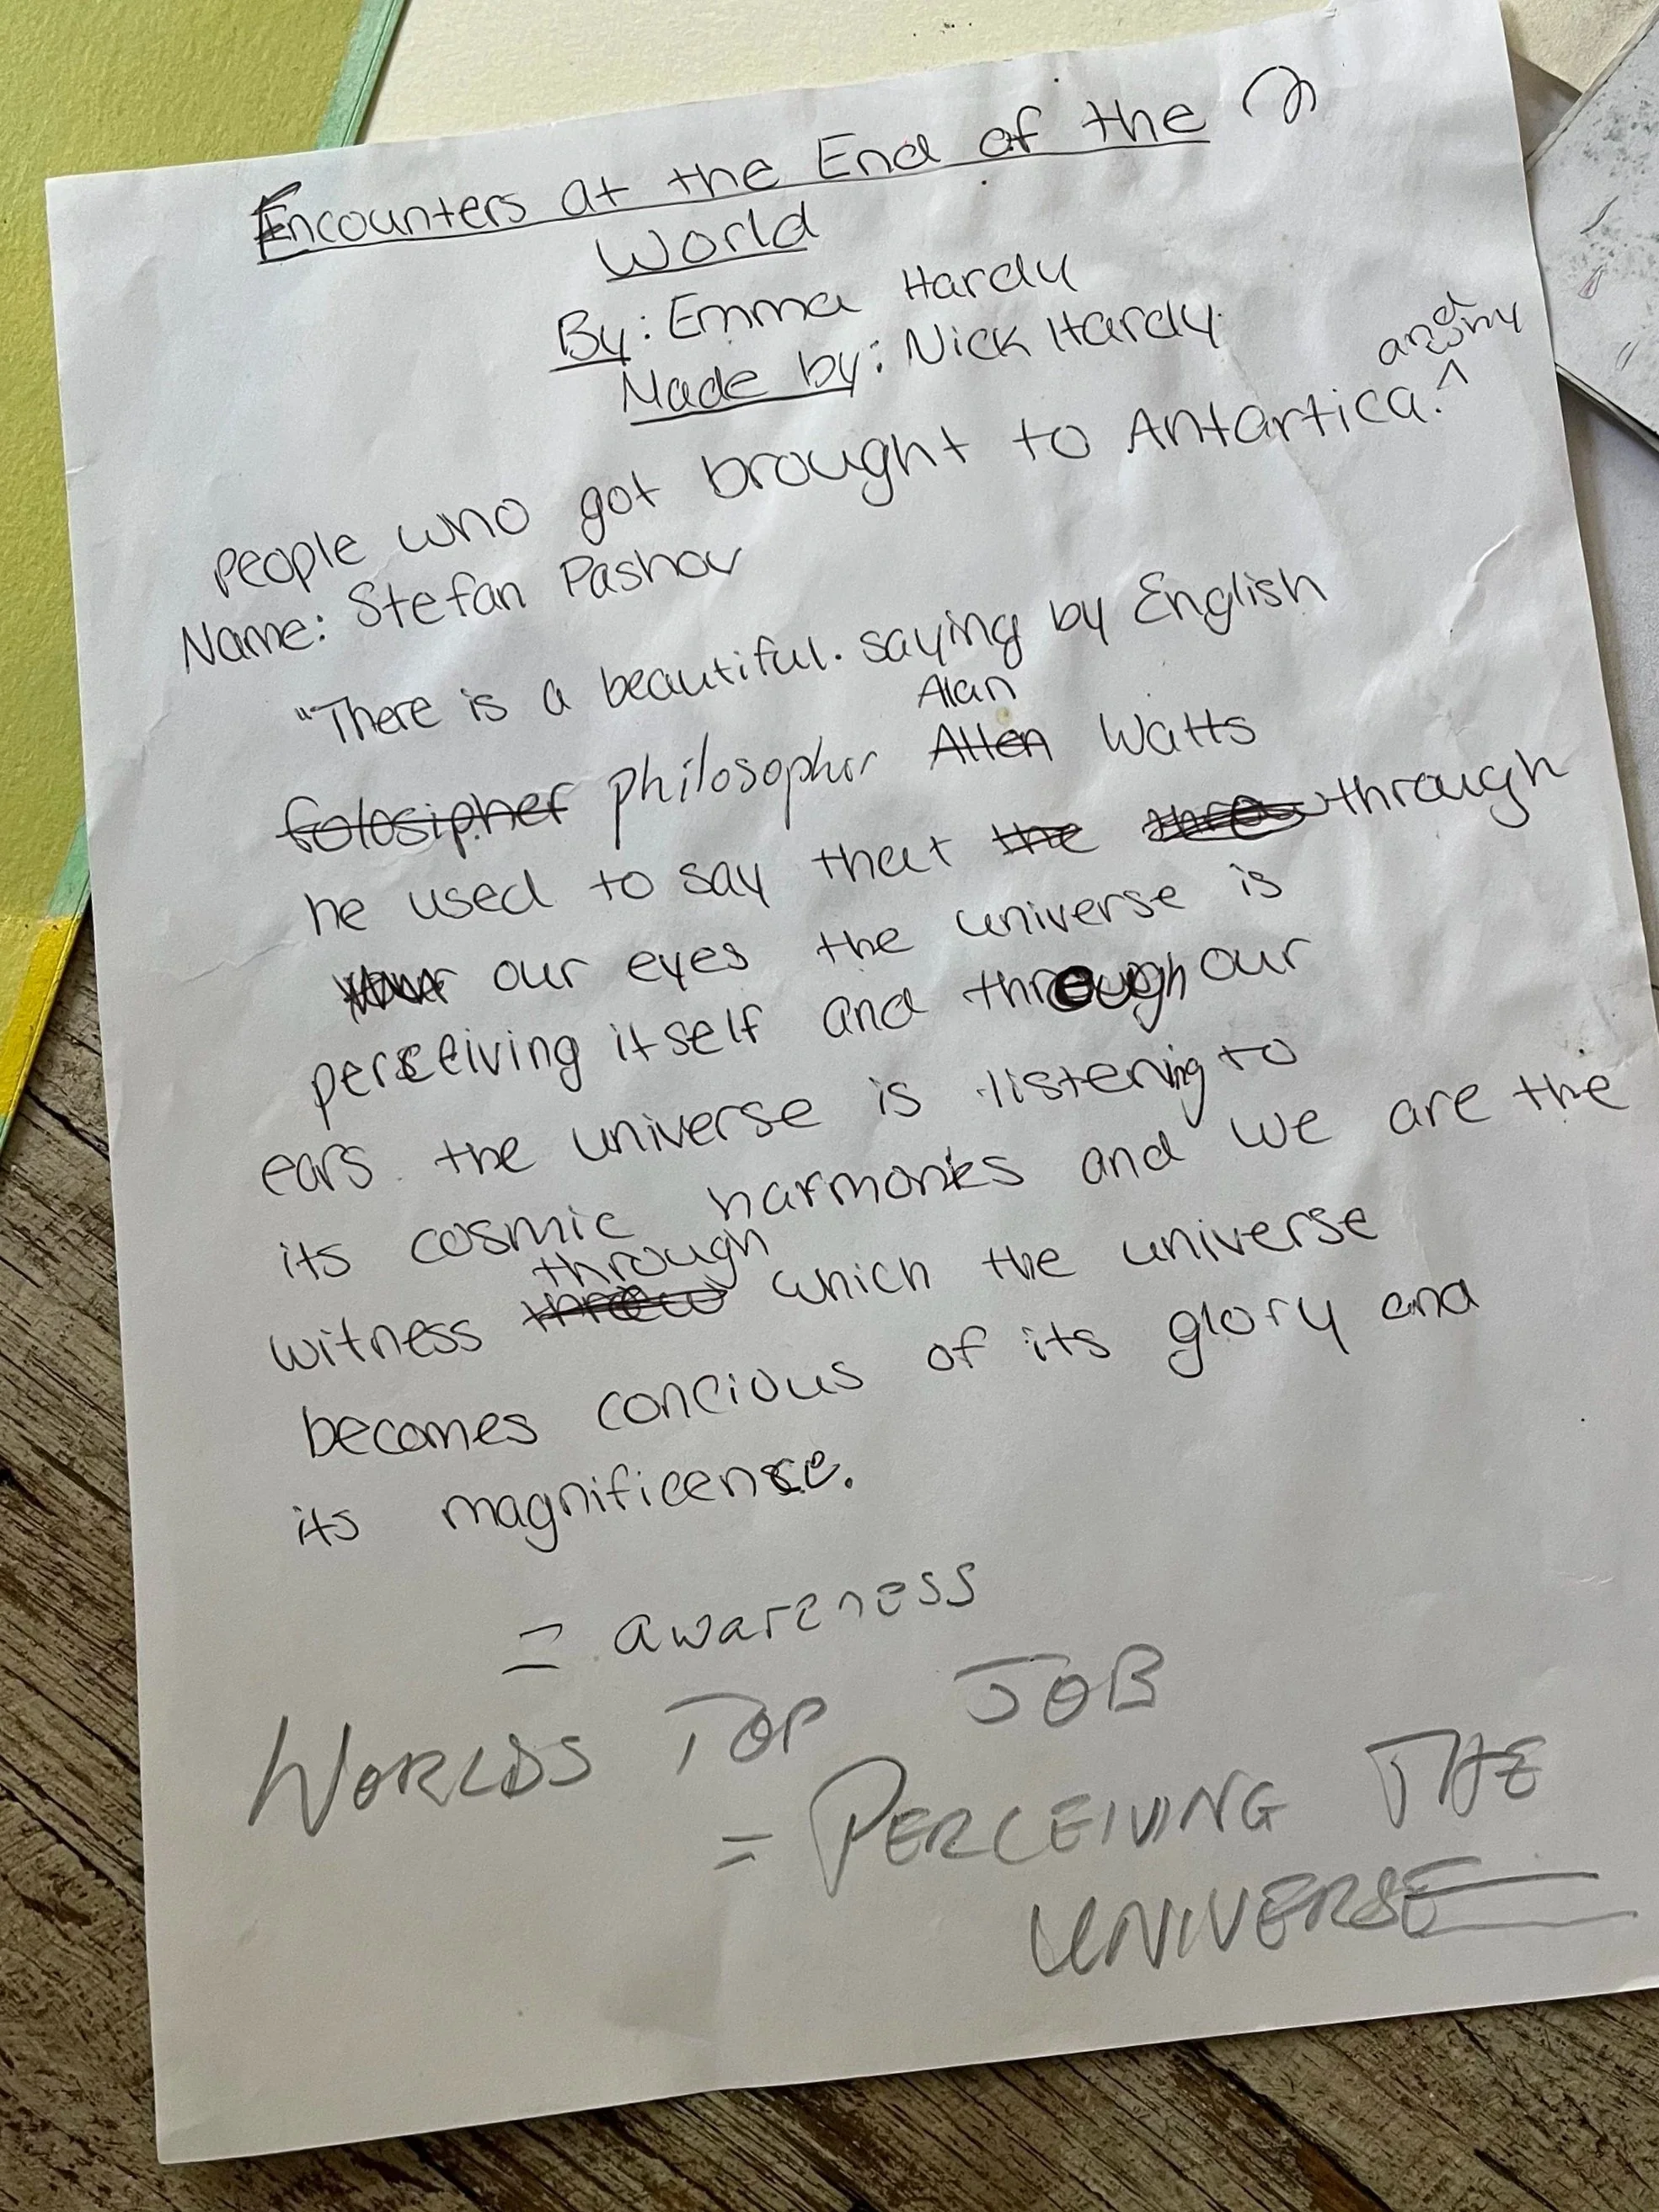 Encounters at the End of the
World
By: Emma Hardy
Made by: Nick Hardy
and why
People who got brought to Antartica.^
Name: Stefan Pashov
"There is a beautiful. saying by English
Alan
folosipher philosopher Allen Watts
he used to say that the threw through
our eyes the universe is
perceiving itself and through our
ears the universe is listening to
its cosmic harmonies and we are the
through
witness threw which the universe
becomes concious of its glory and
its magnificence.
= awareness
WORLDS TOP JOB
= PERCEIVING THE
UNIVERSE